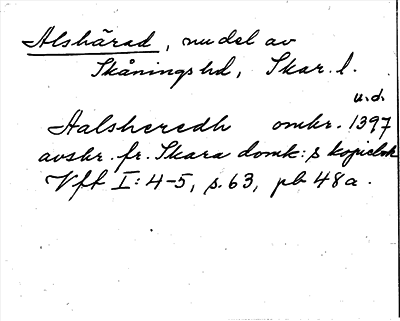 Alshärad, nu del av
Skånings hd, Skar. l.
u.d.
Aalsheredh omkr. 1397
avskr. fr. Skara domk:s kopiebok
Vft I:4-5, s.63, pb 48a.